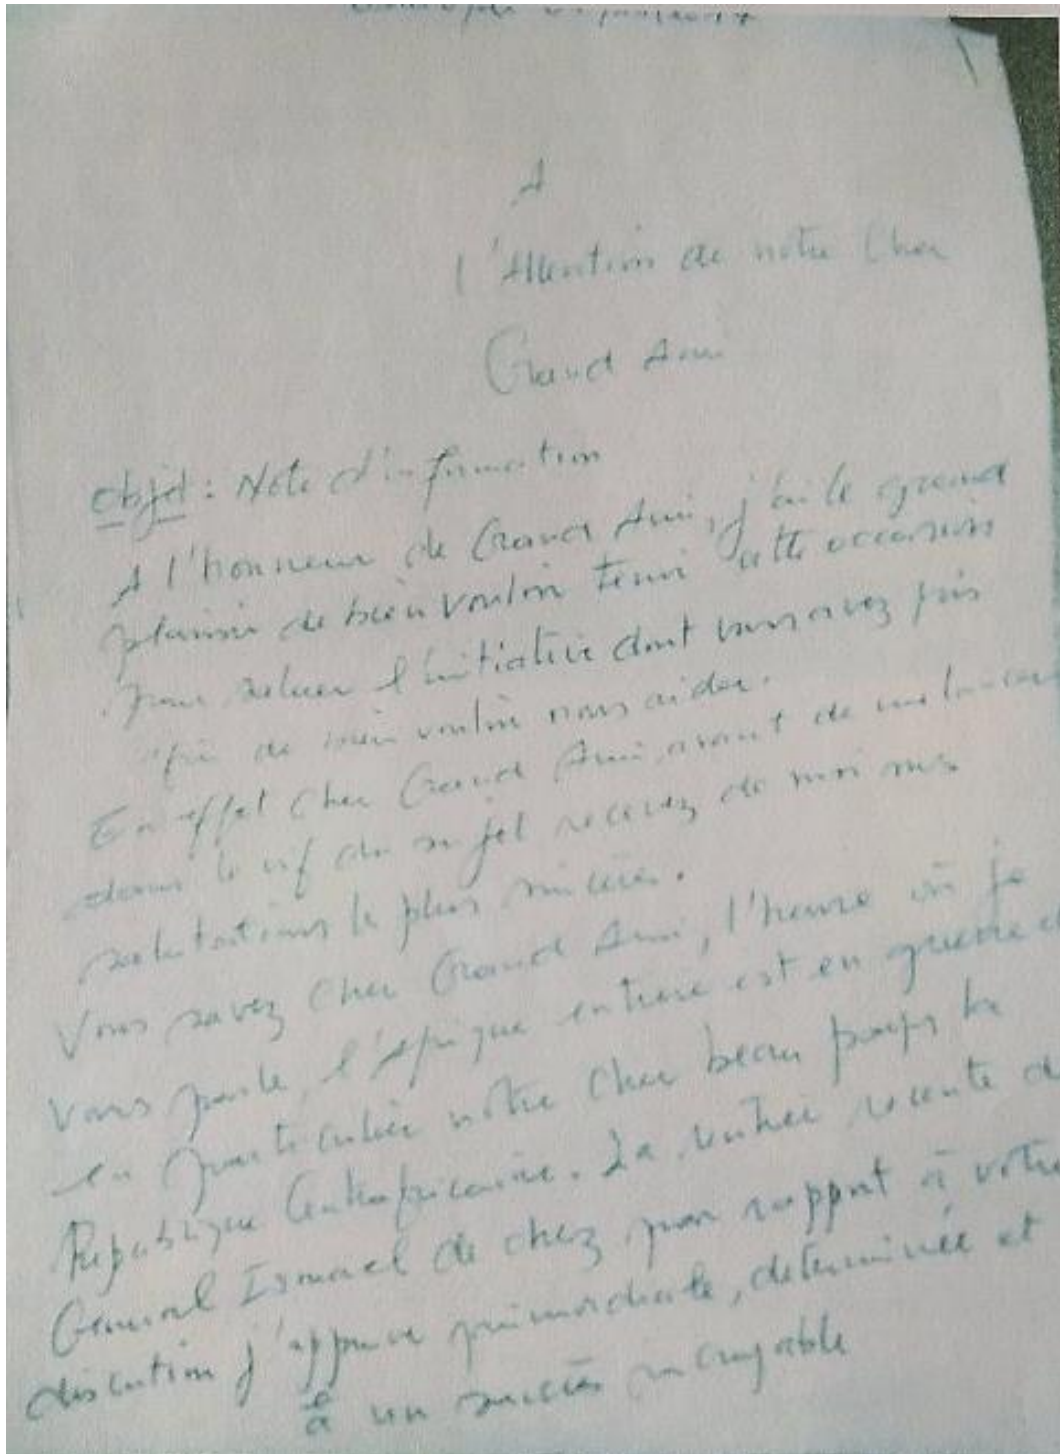 A
l'Attention de notre Cher
Grand Ami
Objet : Note d'information
A l'honneur de Grand Ami, j'ai le grand
plaisir de bien vouloir tenir cette occasion
pour saluer l'initiative dont vous avez pris
afin de bien vouloir nous aider.
En effet cher Grand Ami, avant de me lancer
dans le vif du sujet recevez de moi mes
salutations le plus sincère.
Vous savez Cher Grand Ami, l'heure où je
vous parle, l'Afrique entière est en guerre
en particulier notre cher beau pays la
République Centrafricaine. La rentrée récente
General Ismael de chez par rapport à votre
discution j'approuve primordiale, déterminée et
à un succès incroyable